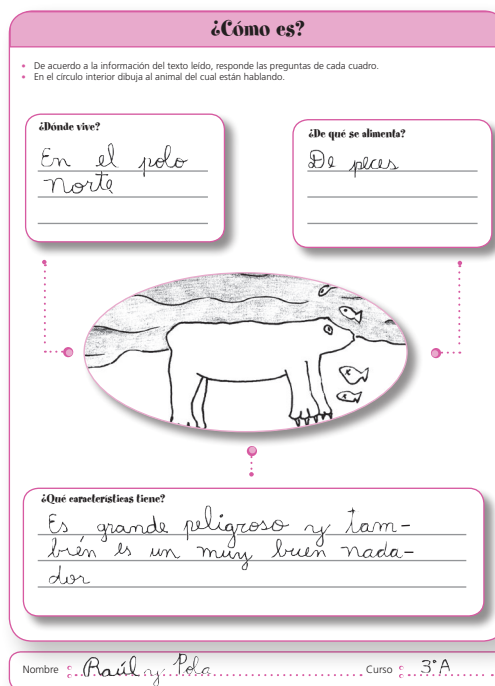 ¿Cómo es?
• De acuerdo a la información del texto leído, responde las preguntas de cada cuadro.
• En el círculo interior dibuja al animal del cual están hablando.
¿Dónde vive?
En el polo
Norte
¿De qué se alimenta?
De peces
¿Qué características tiene?
Es grande peligroso y tam-
bién es un muy buen nada-
dor
Nombre : Raúl y Pola Curso : 3°A